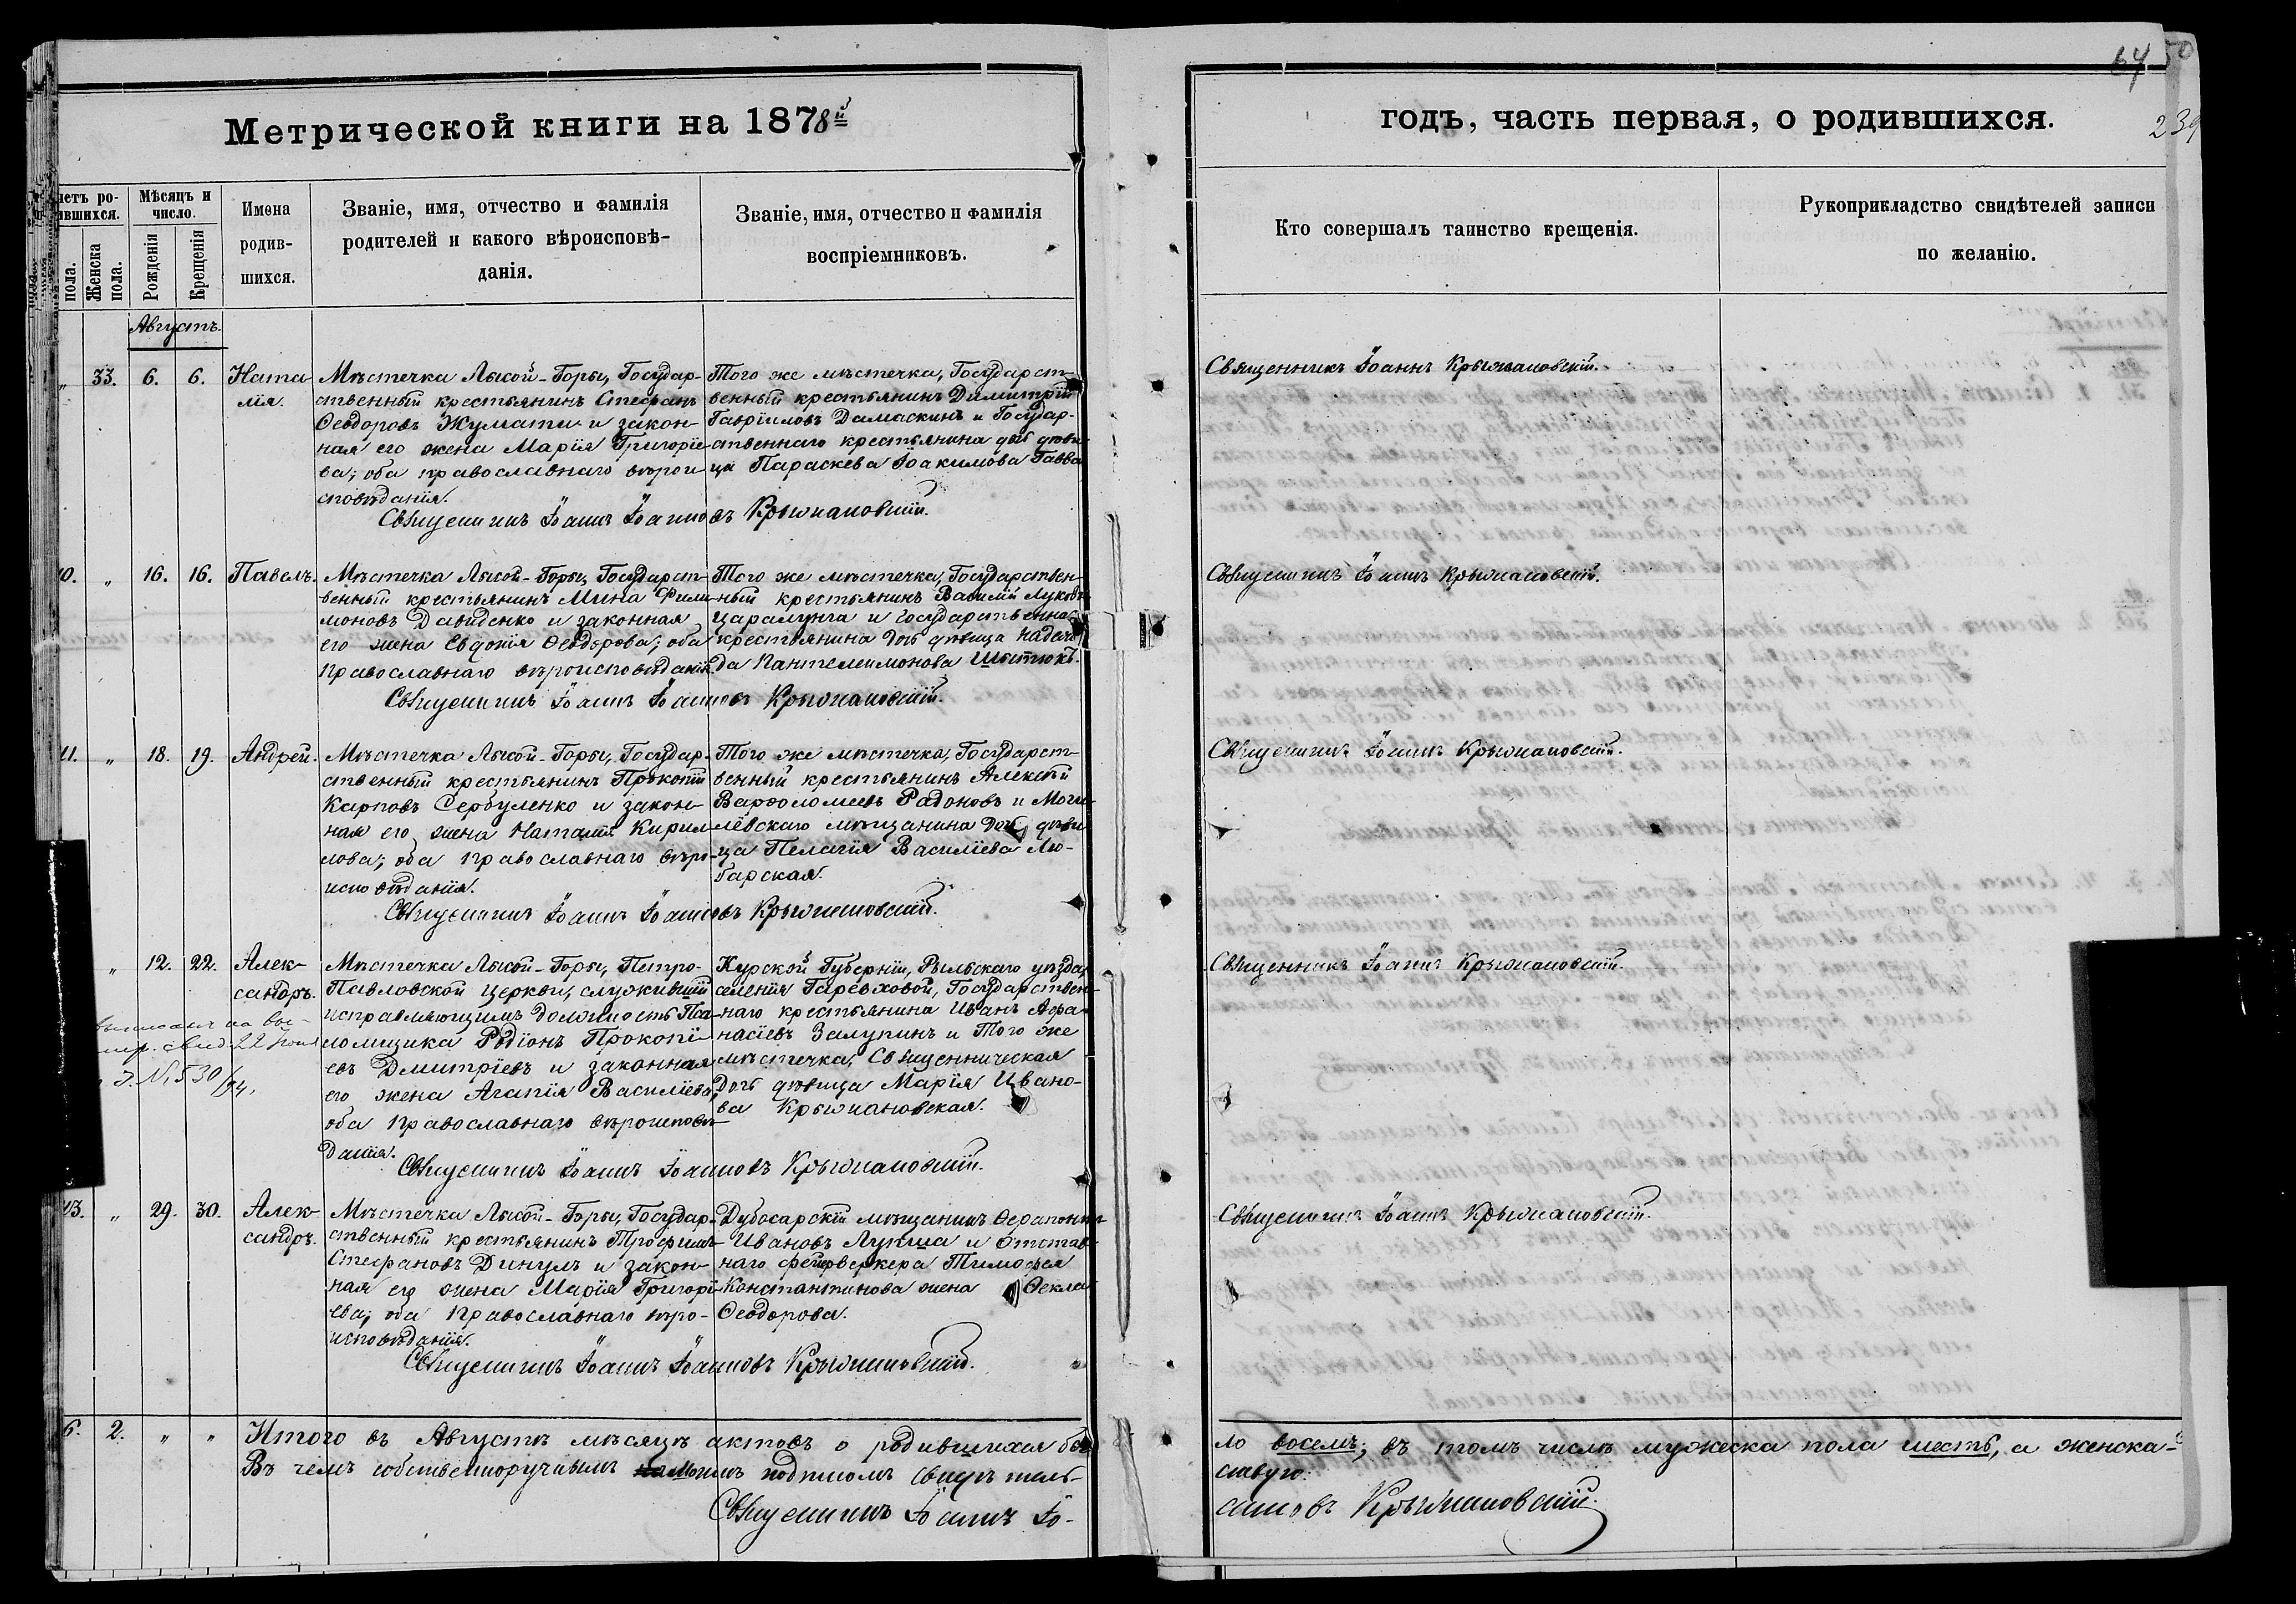 64 50
239
Метрической книги на 1878й
годъ, часть первая, о родившихся.
четъ ро-
ившихся.
пола.
Женска пола.
Мѣсяцъ и
число.
Рожденія
Крещенія
Имена
родив-
шихся.
Званіе, имя, отчество и фамилія
родителей и какого вѣроисповѣ-
данія.
Званіе, имя, отчество и фамилія
воспріемниковъ.
Кто совершалъ таинство крещенія.
Рукоприкладство свидѣтелей записи
по желанію.
Августъ.
„ 33. 6. 6.
Ната
лія.
Мѣстечка Лысой-Горы, Государ-
ственный крестьянинъ Стефанъ
Ѳеодоровъ Жумати и закон-
ная его жена Марія Григоріе-
ва; оба православнаго вѣрои
сповѣданія.
Того же мѣстечка, Государст-
венный крестьянинъ Димитрій
Гавріиловъ Дамаскинъ и Государ-
ственнаго крестьянина дочь дѣви-
ца Параскева Іоакимова Гавва
Священникъ Іоаннъ Іоанновъ Крыжановскій.
Священникъ Іоаннъ Крыжановскій.
10. „ 16. 16.
Павелъ.
Мѣстечка Лысой-Горы, Государст-
венный крестьянинъ Мина Фили
моновъ Давиденко и законная
его жена Евдокія Ѳеодорова; оба
православнаго вѣроисповѣданія.
Того же мѣстечка, Государствен-
ный крестьянинъ Василій Луковъ
Царалунга и Государственнаго
крестьянина дочь дѣвица Надеж
да Пантелеимонова
Священникъ Іоаннъ Іоанновъ Крыжановскій.
Священникъ Іоаннъ Крыжановскій.
11. „ 18. 19.
Андрей.
Мѣстечка Лысой-Горы, Государ-
ственный крестьянинъ Прокопій
Карповъ Сербуленко и закон-
ная его жена Наталія Кирил
лова; оба православнаго вѣро-
исповѣданія.
Того же мѣстечка, Государст-
венный крестьянинъ Алексѣй
Варѳоломеевъ Радоновъ и Моги-
лёвскаго мѣщанина дочь дѣви
ца Пелагія Василіева Лю-
барская.
Священникъ Іоаннъ Іоанновъ Крыжановскій.
Священникъ Іоаннъ Крыжановскій.
„ 12. 22.
Алек-
сандръ.
22
Э. № 530/94.
Мѣстечка Лысой-Горы, Петро-
Павловской церкви, служившій
исправляющимъ должность Пса
ломщика Родіонъ Прокопі
евъ Дмитріевъ и законная
его жена Агапія Василіева,
оба православнаго вѣроисповѣ-
данія.
Курской Губерніи, Рыльскаго уѣзда,
селенія Гаревховой, Государствен-
наго крестьянина Иванъ Аѳа-
насіевъ Залупинъ и Того же
мѣстечка, Священническая
дочь дѣвица Марія Ивано-
ва Крыжановская.
Священникъ Іоаннъ Іоанновъ Крыжановскій.
Священникъ Іоаннъ Крыжановскій.
13. „ 29. 30.
Алек-
сандръ.
Мѣстечка Лысой-Горы, Государ-
ственный крестьянинъ Трофимъ
Стефановъ Дингулъ и закон-
ная его жена Марія Григорі-
ева, оба православнаго вѣро-
исповѣданія.
Дубосарскій мѣщанинъ Ѳерапонтъ
Ивановъ Лупша и отстав-
наго фейерверкера Тимоѳея
Константинова жена Ѳекла
Ѳеодорова.
Священникъ Іоаннъ Іоанновъ Крыжановскій.
Священникъ Іоаннъ Крыжановскій.
6. 2. „ „
Итого въ Августѣ мѣсяцѣ актовъ о родившихся бы
ло восемь; въ томъ числѣ мужеска пола шесть, а женска-
Въ чемъ собственноручнымъ моимъ подписомъ свидѣтель-
ствую.
Священникъ Іоаннъ Іо-
анновъ Крыжановскій.